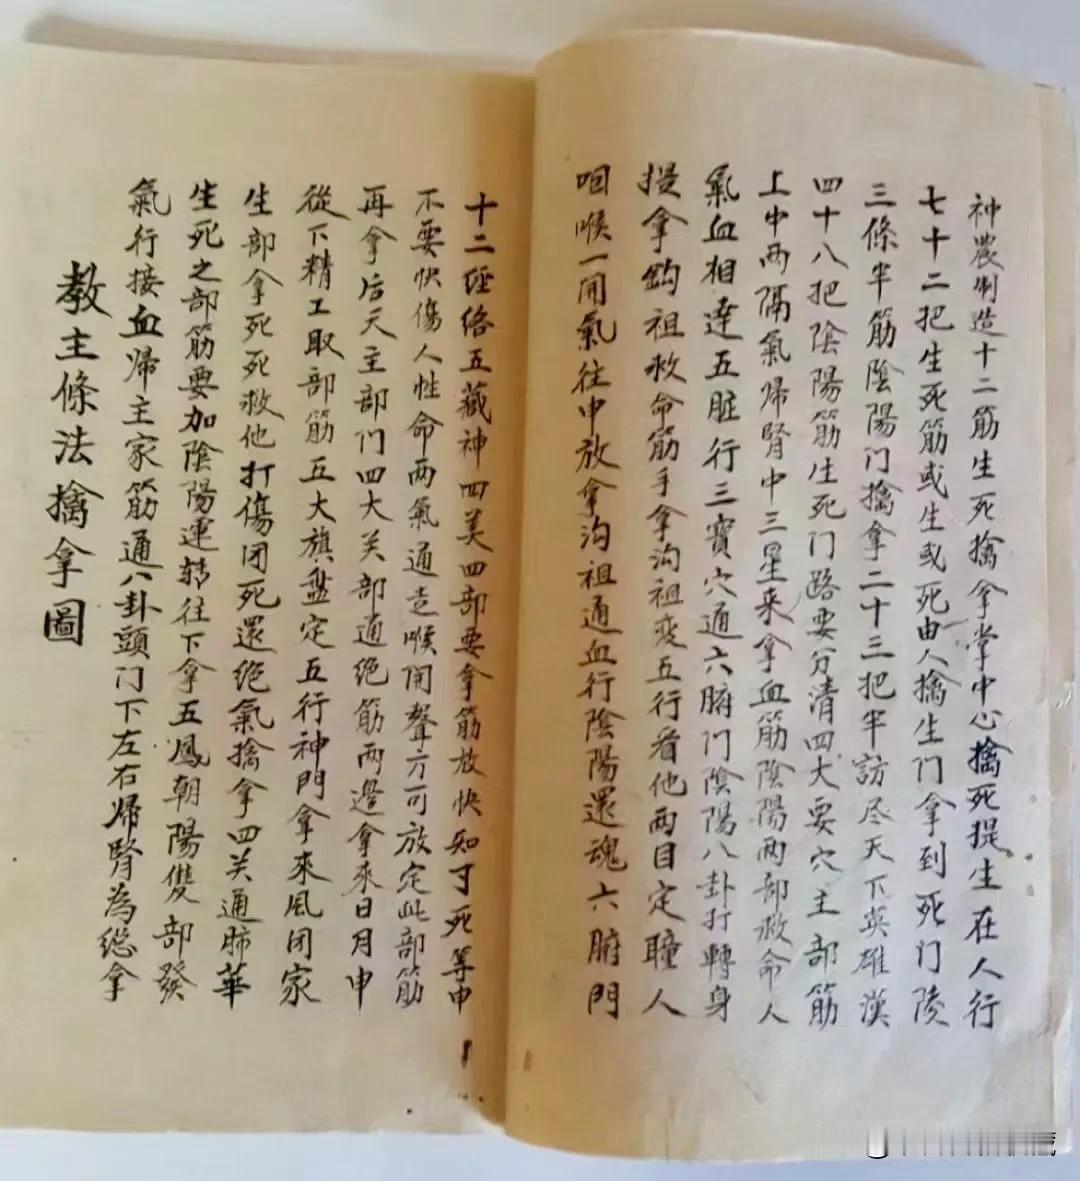 神農制造十二筋生死擒拿掌中心擒死提生在人行
七十二把生死筋或生或死由人擒生门拿到死门陵
三條半筋陰陽门擒拿二十三把半訪尽天下英雄漢
四十八把陰陽筋生死门路要分清四大要穴主部筋
上中两隔氣帰腎中三星来拿血筋陰陽两部救命人
氣血相達五脏行三寳穴通六腑门陰陽八卦打轉身
提拿鈎祖救命筋手拿沟祖变五行看他两目定瞳人
咽喉一開氣往中放拿沟祖通血行陰陽還魂六腑門
十二經络五藏神四美四部要拿筋放快知丁死等中
不要快傷人性命两氣通走喉開聲方可放定此部筋
再拿后天主部门四大关部通绝筋两邊拿來日月中
從下精工取部筋五大旗盘定五行神門拿來风闭家
生部拿死死救他打傷闭死還绝氣擒拿四关通肺華
生死之部筋要加陰陽運转往下拿五鳳朝陽雙部發
氣行接血帰主家筋通八卦頭门下左右帰腎為总拿
教主條法擒拿圖